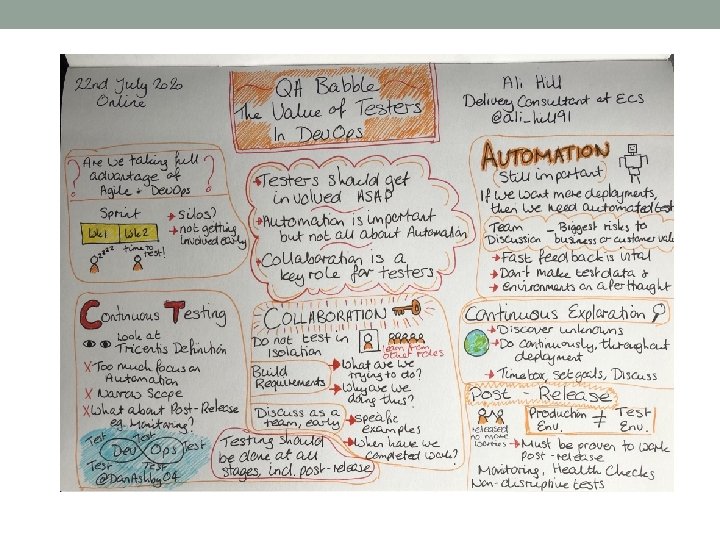 22nd July 2020
Online
QA Babble
The Value of Testers
In DevOps
Ali Hill
Delivery Consultant at ECS
@ali_hill91
Are we taking full
advantage of
Agile + DevOps
? ?
Sprint
Wk1 Wk2
zzzz time to
test!
Silos?
not getting
involved early
Testers should get
involved ASAP
Automation is important
but not all about Automation
Collaboration is a
key role for testers
AUTOMATION
Still important
If we want more deployments,
then we need automated test
Team
Discussion
- Biggest risks to
business or customer valu
Fast feedback is vital
Don't make test data &
environments an afterthought
Continuous Testing
Look at
Tricentis Definition
X Too much focus on
Automation
X Narrow Scope
X What about Post-Release
eg. Monitoring?
Test Test
Dev Ops Test
Test Test
@DanAshby04
COLLABORATION
Do not test in
Isolation
learn from
other roles
Build
Requirements
What are we
trying to do?
Why are we
doing this?
Discuss as a
team, early
Specific
examples
When have we
completed work?
Testing should
be done at all
stages, incl. post-release
Continuous Exploration
Discover unknowns
Do continuously, throughout
deployment
Timebox, set goals, Discuss
Post - Release
released
no more
worries
Production
Env.
≠
Test
Env.
Must be proven to work
post-release
Monitoring, Health Checks
Non-disruptive tests